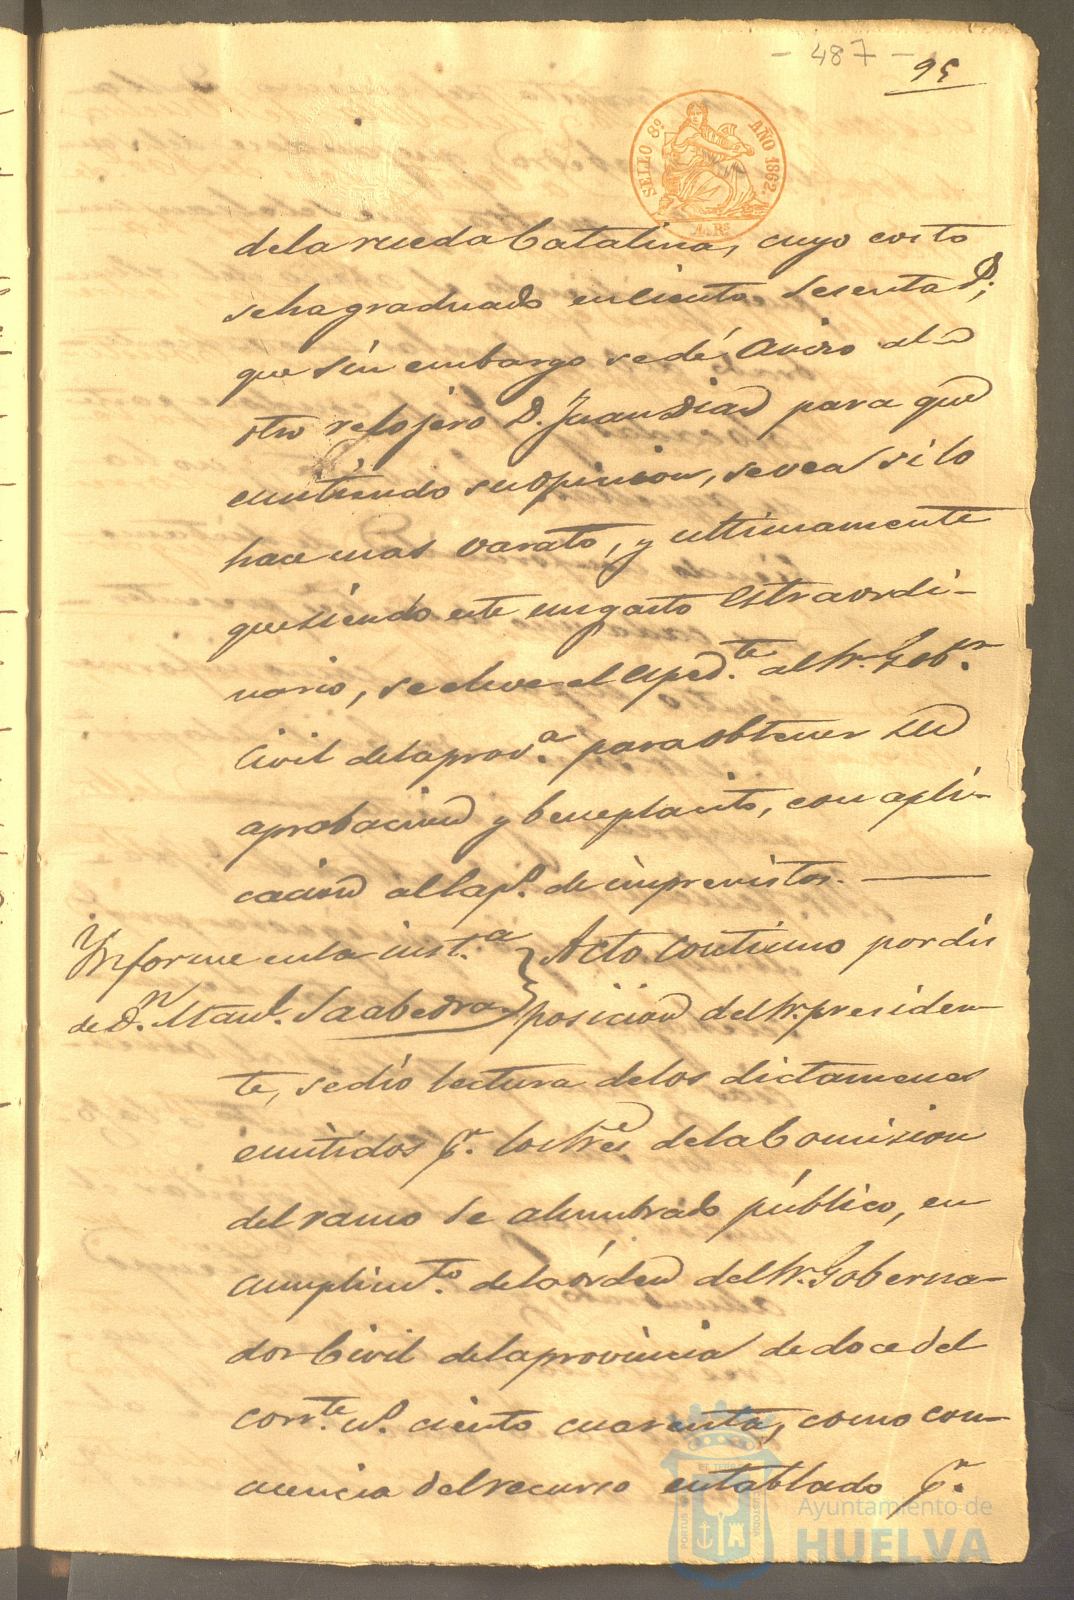 - 487 -
95
SELLO 8º AÑO 1862.
4 Rs
de la rueda Catalina, cuyo costo
se ha graduado en ciento sesenta rs;
que sin embargo se dé aviso al
otro relojero D. Juan Diaz para que
emitiendo su opinion, se vea si lo
hace mas varato, y ultimamente
que siendo este un gasto estraordi-
nario, se eleve el esped.te al Sr. Gob.or
Civil de la prov.a para obtener su
aprobacion y beneplacito, con apli-
cacion al cap.o de imprevistos.
Ynforme en la inst.a
de Dn. Manl. Saabedra
Acto continuo por dis
posicion del Sr. presiden-
te, se dio lectura de los dictamenes
emitidos pr. los Sres de la Comision
del ramo de alumbrado público, en
cumplimto. de la órden del Sr. Goberna-
dor Civil de la provincia de doce del
corrte. no. ciento cuarenta, como con-
uencia del recurso entablado pr.
PORTUS
CUSTODIA
Ayuntamiento de
HUELVA